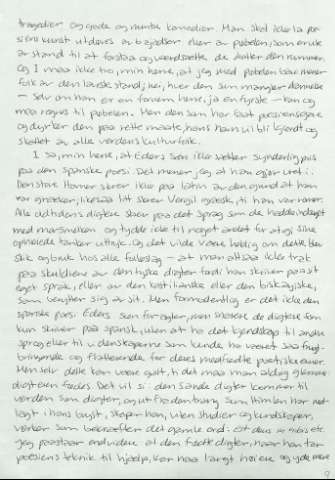 tragedier og gode og muntre komedier. Man skal ikke la po-
esiens kunst utøves av bajadser eller av pøbelen, som er ute
av stand til at forstaa og værdsætte de skatter den rummer.
Og I maa ikke tro, min herre, at jeg med pøbelen bare mener
folk av den lavere stand; nei, hver den som mangler dannelse
– selv om han er en fornem herre, ja en fyrste – kan og
maa regnes til pøbelen. Men den som har faat poesiens gave
og dyrker den paa rette maate, hans navn vil bli kjendt og
skattet av alle verdens kulturfolk.
I sa, min herre, at Eders søn ikke sætter synderlig pris
paa den spanske poesi. Det mener jeg at han gjør uret i.
Den store Homer skrev ikke paa latin av den grund at han
var græker, likesaa litt skrev Vergil græsk, ti han var romer.
Alle oldtidens digtere skrev paa det sprog som de hadde inddiet
med morsmelken og tydde ikke til noget andet for at gi sine
ophøiede tanker uttryk. Og det vilde være heldig om dette ble
skik og bruk hos alle folkeslag – at man altsaa ikke trak
paa skuldrene av den tyske digter fordi han skriver paa sit
eget sprog, eller av den kastilianske eller den biskayiske,
som benytter sig av sit. Men formodentlig er det ikke den
spanske poesi Eders søn foragter, men snarere de digtere som
kun skriver paa spansk, uten at ha det kjendskap til andre
sprog eller til videnskaperne som kunde ha været saa frugt-
bringende og flatterende for deres medfødte poetiske evner.
Men selv dette kan være galt, ti det maa man aldrig glemme:
digteren fødes. Det vil si: den sande digter kommer til
verden som digter, og ut fra den trang som himlen har ned-
lagt i hans bryst, skaper han, uten studier og kundskaper,
verker som bekræfter det gamle ord: est deus in nobis etc.
Jeg paastaar endvidere at den fødte digter, naar han tar
poesiens teknik til hjælp, kan naa langt høiere og yde mere